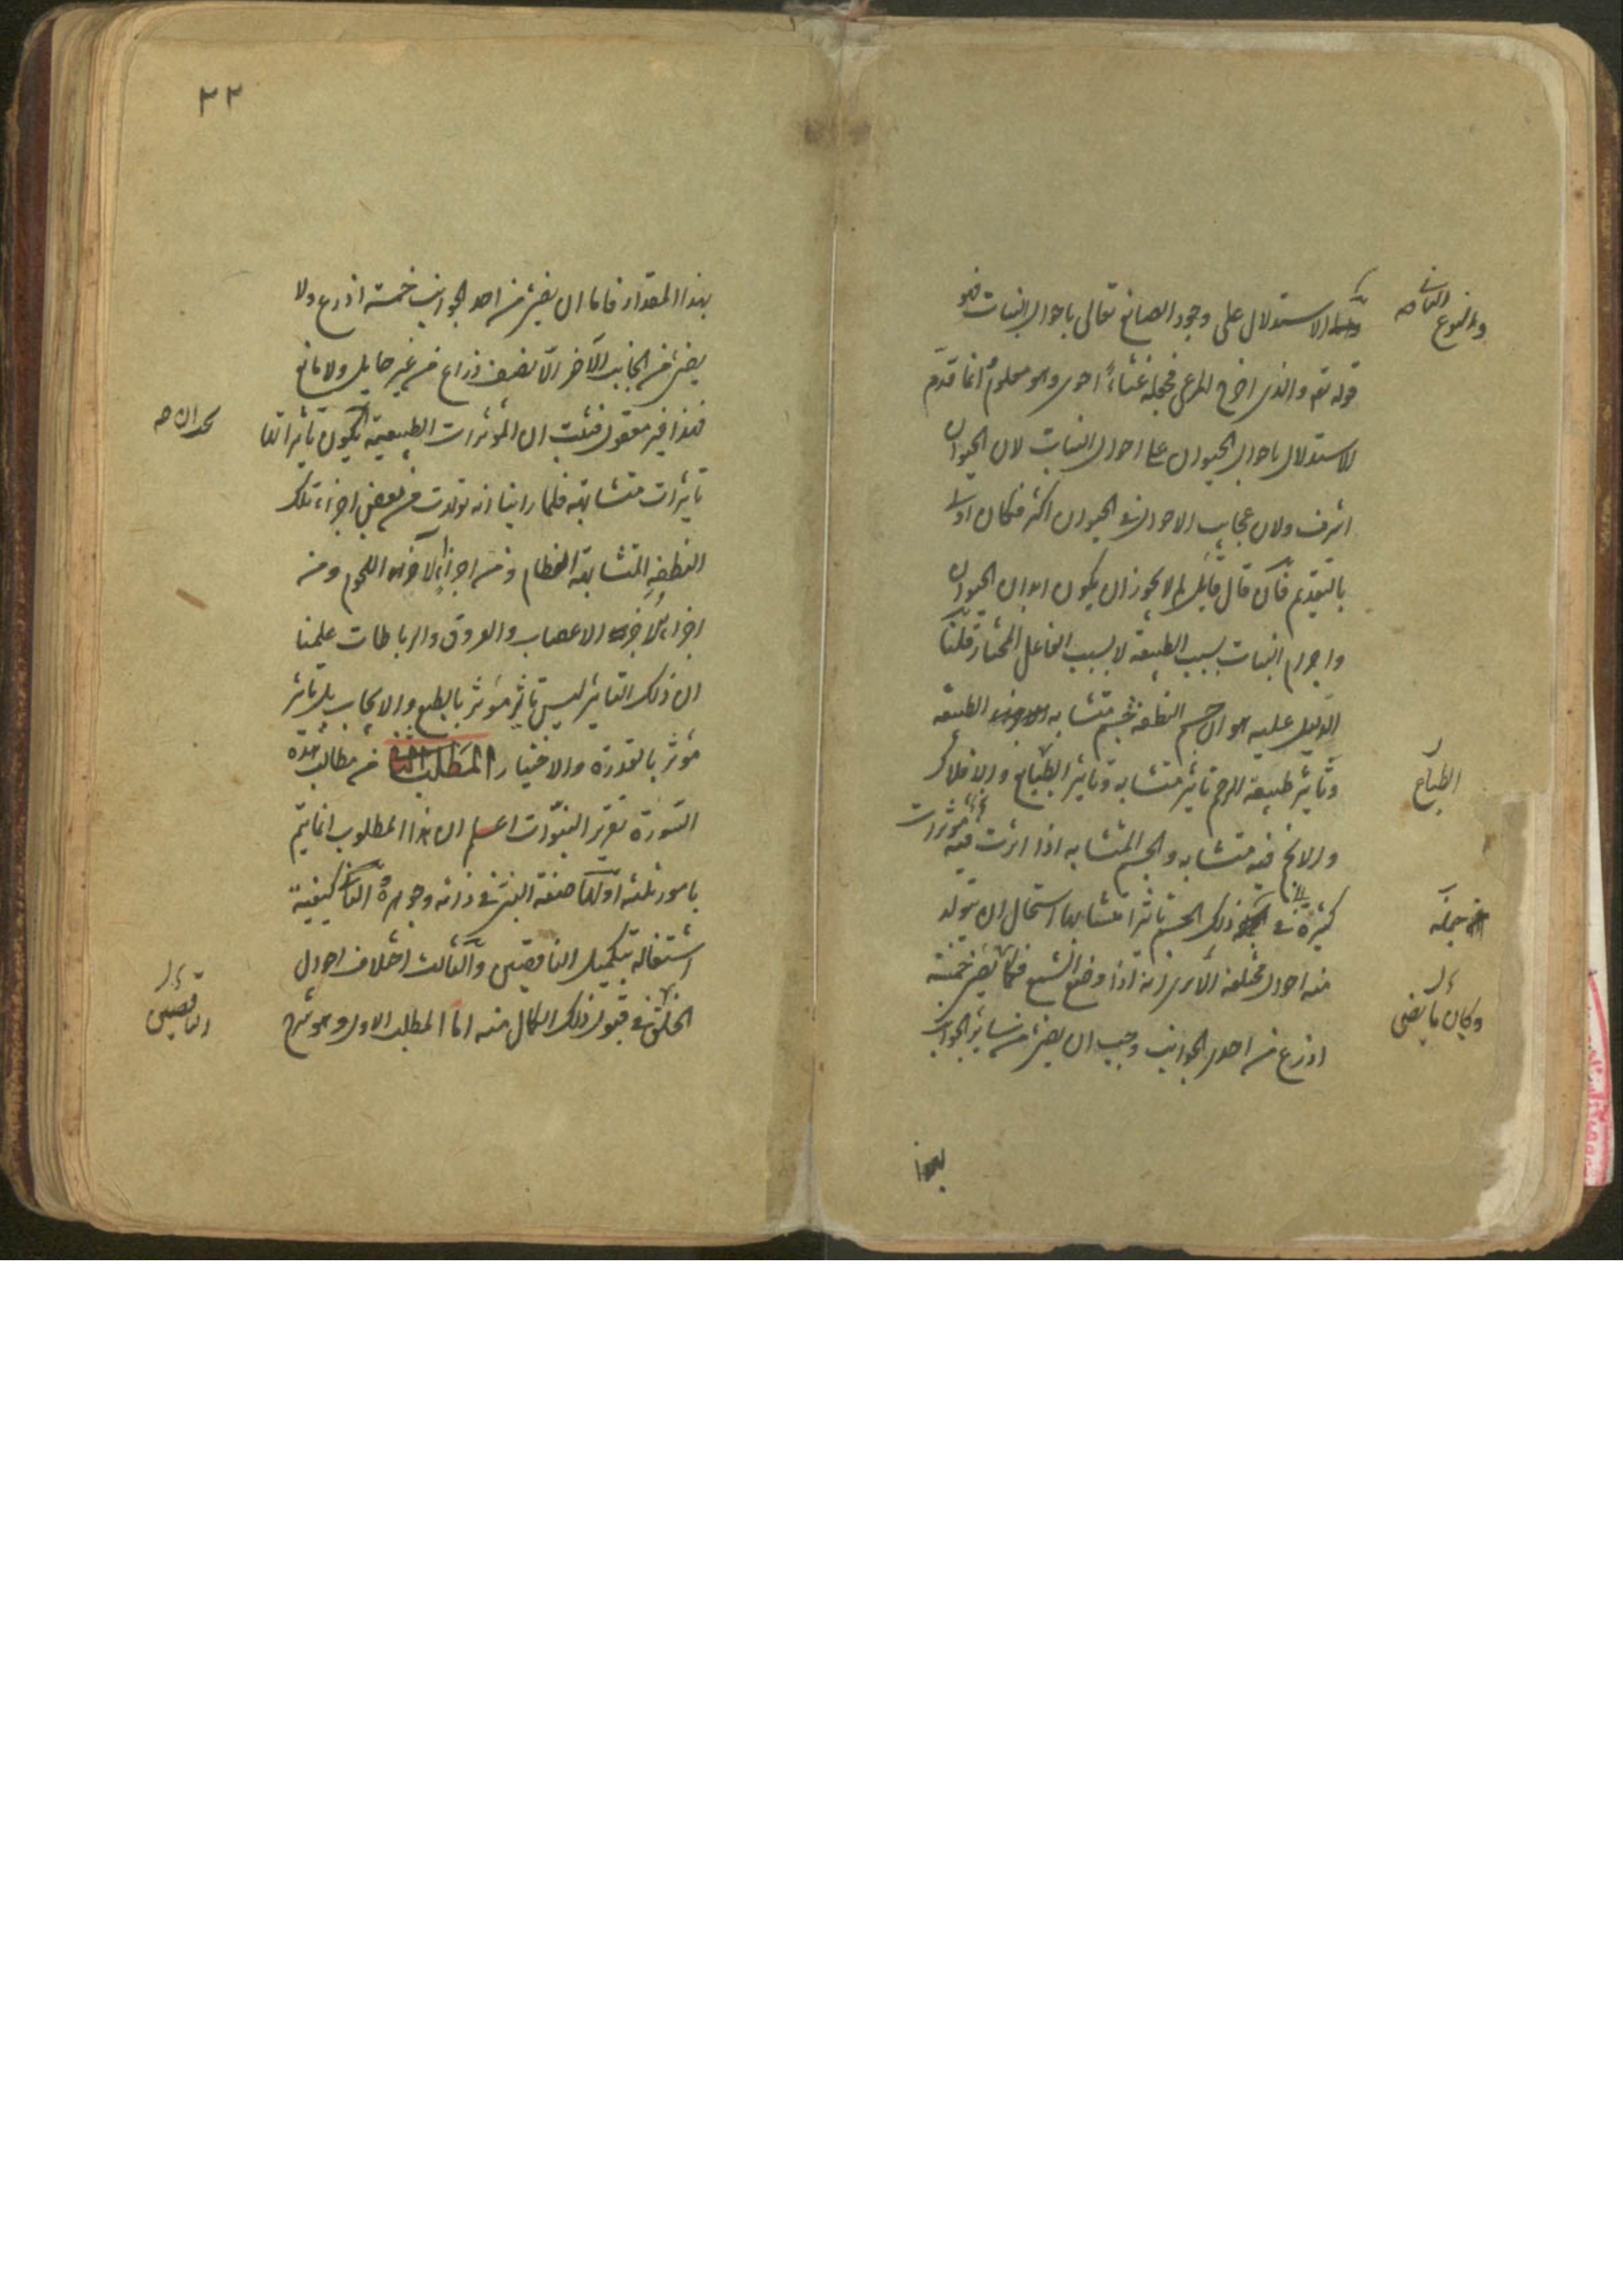 والنوع الثانى صح
الاستدلال على وجود الصانع تعالى باحوال النبات فهو
قوله تع والذى اخرج المرعى فجعله غثاءً احوى وهو معلوم انما قدم
الاستدلال باحوال الحيوان على احوال النبات لان الحيوان
اشرف ولان عجايب الاحوال فى الحيوان اكثر فكان اولى
بالتقديم فان قال قايل لم لا يجوز ان يكون ابدان الحيوان
واجرام النبات بسبب الطبيعة لا بسبب الفاعل المختار قلنا
الدليل عليه هو ان جسم النطفة جسم متشابه الطبيعة
وتاثير طبيعة الرحم تاثير متشابه وتاثير الطبايع والافلاك
الطبايع
والانجم فيه متشابه والجسم المتشابه اذا اثرت فيه مؤثرات
كثيرة فى ذلك الجسم تاثيرا متشابها استحال ان يتولد
جملة
منه احوال مختلفة الا ترى انه اذا وضع الشمع فكما يضئ خمسة
وكان ما يضئ
اذرع من احد الجوانب وجب ان يضئ من ساير الجوانب
بهذا
٢٢
بهذا المقدار فاما ان يضئ من احد الجوانب خمسة اذرع ولا
يضئ من الجانب الآخر الا نصف ذراع من غير حايل ولا مانع
فهذا غير معقول فثبت ان المؤثرات الطبيعية يكون تاثيراتها
يجب ان صح
تاثيرات متشابهة فلما راينا انه تولدت من بعض اجزاء تلك
النطفة المتشابهة العظام ومن اجزاء الآخر اللحوم ومن
اجزاء الآخر الاعصاب والعروق والرباطات علمنا
ان ذلك التاثير ليس تاثير مؤثر بالطبع والايجاب بل تاثير
مؤثر بالقدرة والاختيار المطلب الثانى من مطالب هذه
السورة تقرير النبوات اعلم ان هذا المطلوب انما يتم
بامور ثلثة اولها صفة النبى فى ذاته وجوهره والثانى كيفية
اشتغاله بتكميل الناقصين والثالث اختلاف احوال
الخلق فى قبول ذلك الكمال منه اما المطلب الاول وهو شرح
الناقصين